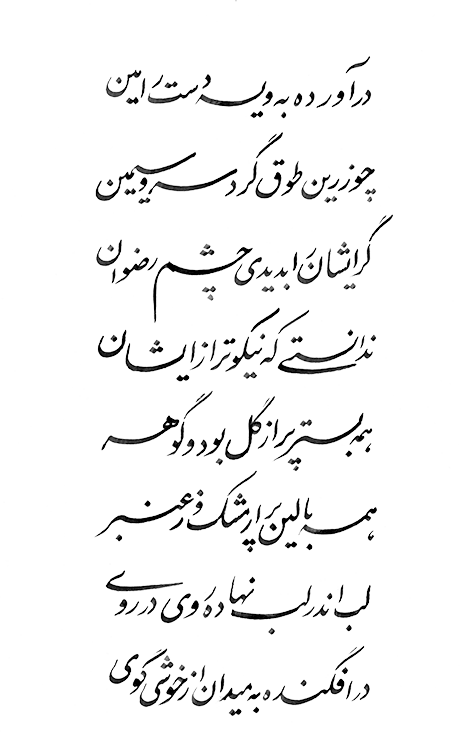 درآورده به ویسه دست رامین
چو زرین طوق گرد سرو سیمین
گر ایشان را بدیدی چشم رضوان
ندانستی که نیکوتر از ایشان
همه بستر پر از گل بود و گوهر
همه بالین پر از مشک و ز عنبر
لب اندر لب نهاده روی در روی
در افگنده به میدان از خوشی گوی